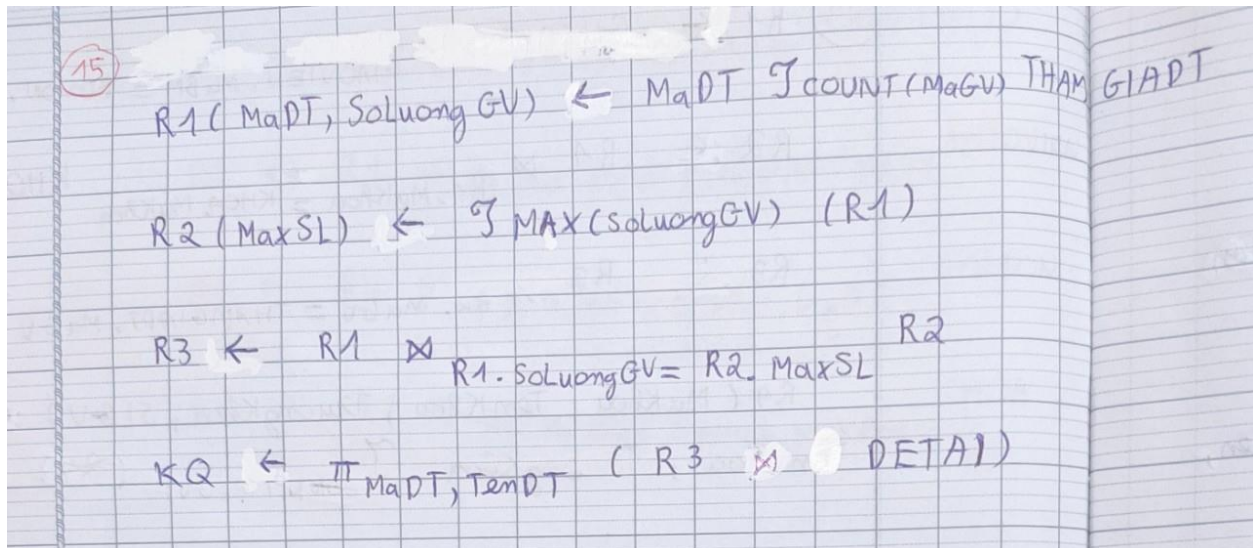 15
R1 ( MaDT, Soluong GV) ← MaDT ℑ COUNT(MaGV) THAM GIADT
R2 (MaxSL) ← ℑ MAX(SoluongGV) (R1)
R3 ← R1 ⋈ R1.SoLuongGV = R2.MaxSL R2
KQ ← π MaDT, TenDT ( R3 ⋈ DETAI)